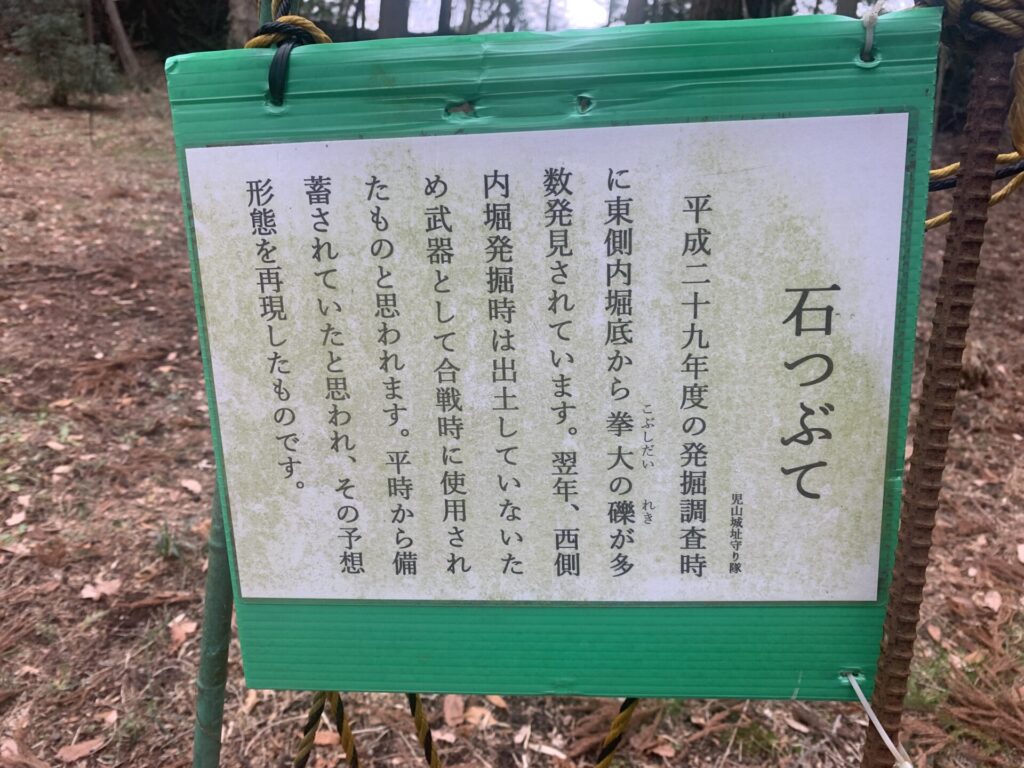 石つぶて
児山城址守り隊
平成二十九年度の発掘調査時
に東側内堀底から拳大の礫が多
こぶしだい
れき
数発見されています。翌年、西側
内堀発掘時は出土していないた
め武器として合戦時に使用され
たものと思われます。平時から備
蓄されていたと思われ、その予想
形態を再現したものです。